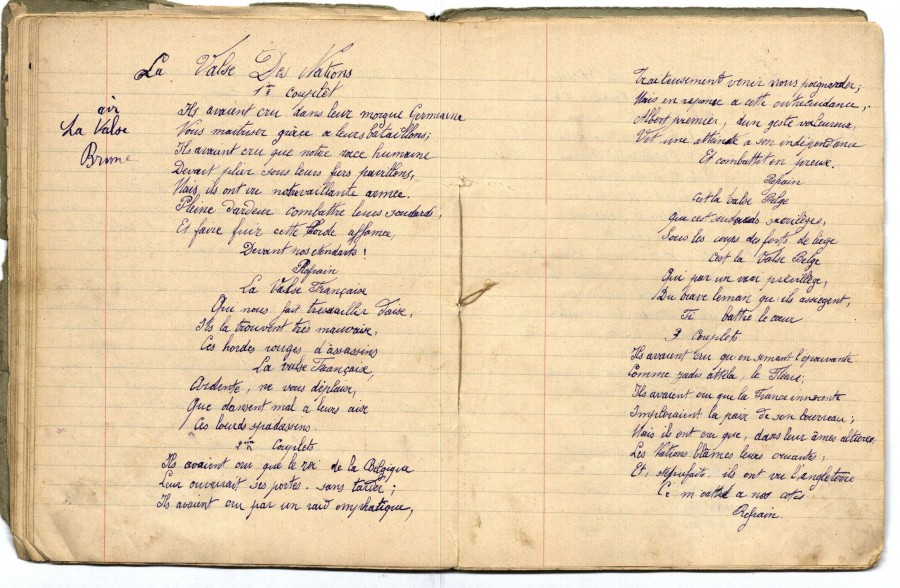 La Valse Des Nations
1er Couplêt
air
La Valse
Brune
Ils avaient cru dans leur morgue Germaine
Vous maitriser grâce a leurs bataillons;
Ils avaient cru que notre race humaine
Devait plier sous leurs fiers pavillons,
Mais, ils ont vu notre vaillante armée
Pleine d'ardeur combattre leurs soudards,
Et faire fuir cette horde affamée,
Devant nos etendarts!
Refrain
La Valse Française
Que nous fait tressaillir d'aise,
Ils la trouvent très mauvaise,
Ces hordes rouges d'assassins
La valse Française,
Ardente, ne vous déplaise,
Que dansent mal a leurs aise
Ces lourds spadassins.
2em Couplets
Ils avaient cru que le roi de la Belgique
Leur ouvrirait ses portes sans tarder;
Ils avaient cru par un raid emphatique,
Traiteusement venir nous poignarder;
Mais en reponse a cette outrecuidance,
Albert premier, d'un geste valeureux,
Vit une atteinte a son indépendance
Et combattit en preux.
Refrain
C'est la valse Belge
que ces soudards sacrilèges,
Sous les coups des forts de liège
C'est la Valse Belge
Qui par un vrai privillège,
Du brave leman qu'ils assiegent,
Fi battre le cœur
3 Couplets
Ils avaient cru qu'en semant l'épouvante
Comme jadis attila, le Fleau;
Ils avaient cru que la France innocente
Imploraient la paix de son bourreau;
Mais ils ont cru que, dans leur âmes altieres,
Les Nations blâmes leurs cruautés,
Et, stupefaits, ils ont vu l'angleterre
a nos cotés
Refrain.